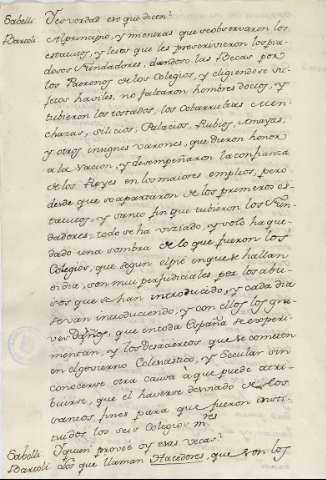 Sabelli Y eso verdad eso que dicen?
Barcoli Al principio, y mientras que se observaron los
estatutos, y leyes que les prescrivieron los pia-
dosos Fundadores, dandose las Becas por
los Patronos de los Colegios, y eligiendose su-
getos haviles, no faltaron hombres doctos, y
tubieron los tostados, los Cobarrubias Men-
chacas, Silicios, Palacios, Rubios, Amayas,
y otros insignes varones, que dieron honor
a la Nacion, y desempeñaron la confianza
de los Reyes en los maiores empleos, pero
desde que se apartaron de los primeros es-
tatutos, y sano fin que tubieron los Fun-
dadores, todo se ha viziado, y solo ha que-
dado una sombra de lo que fueron los
Colegios, que segun el pie en que se hallan
en dia, son mui perjudiciales por los abu-
sos que se han introducido, y cada dia
se van introduciendo, y con ellos los gra-
ves Daños, que en toda España se experi-
mentan, y los desaciertos que se cometen
en el govierno Eclesiastico, y Secular sin
conocerse otra causa à que puede atri-
buirse, que el haverse desviado de los
santos fines para que fueron insti-
tuidos los seis Colegios m.res
Sabelli Y quien provèe oy esas vecas?
Barcoli Los que llaman Hacedores, que son los